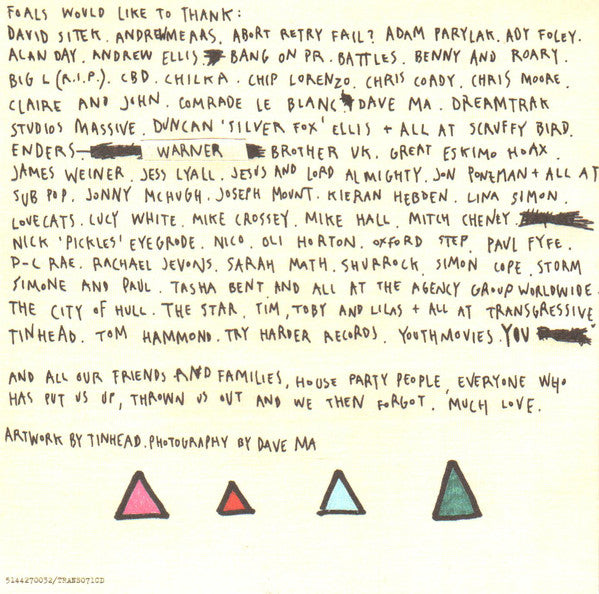 FOALS WOULD LIKE TO THANK:
DAVID SITEK. ANDREWMEARS. ABORT RETRY FAIL? ADAM PARYLAK. ADY FOLEY.
ALAN DAY. ANDREW ELLIS. BANG ON PR. BATTLES. BENNY AND ROARY.
BIG L (R.I.P.). CBD. CHILKA. CHIP LORENZO. CHRIS COADY. CHRIS MOORE.
CLAIRE AND JOHN. COMRADE LE BLANC. DAVE MA. DREAMTRAK
STUDIOS MASSIVE. DUNCAN 'SILVER FOX' ELLIS + ALL AT SCRUFFY BIRD.
ENDERS WARNER BROTHER UK. GREAT ESKIMO HOAX.
JAMES WEINER. JESS LYALL. JESUS AND LORD ALMIGHTY. JON PONEMAN + ALL AT
SUB POP. JONNY MCHUGH. JOSEPH MOUNT. KIERAN HEBDEN. LINA SIMON.
LOVECATS. LUCY WHITE. MIKE CROSSEY. MIKE HALL. MITCH CHENEY.
NICK 'PICKLES' EYEGRODE. NICO. OLI HORTON. OXFORD STEP. PAUL FYFE.
P-C RAE. RACHAEL JEVONS. SARAH MATH. SHURROCK. SIMON COPE. STORM
SIMONE AND PAUL. TASHA BENT AND ALL AT THE AGENCY GROUP WORLDWIDE.
THE CITY OF HULL. THE STAR. TIM, TOBY AND LILAS + ALL AT TRANSGRESSIVE.
TINHEAD. TOM HAMMOND. TRY HARDER RECORDS. YOUTHMOVIES. YOU
AND ALL OUR FRIENDS AND FAMILIES, HOUSE PARTY PEOPLE, EVERYONE WHO
HAS PUT US UP, THROWN US OUT AND WE THEN FORGOT. MUCH LOVE.
ARTWORK BY TINHEAD. PHOTOGRAPHY BY DAVE MA
5144270032/TRANS071CD